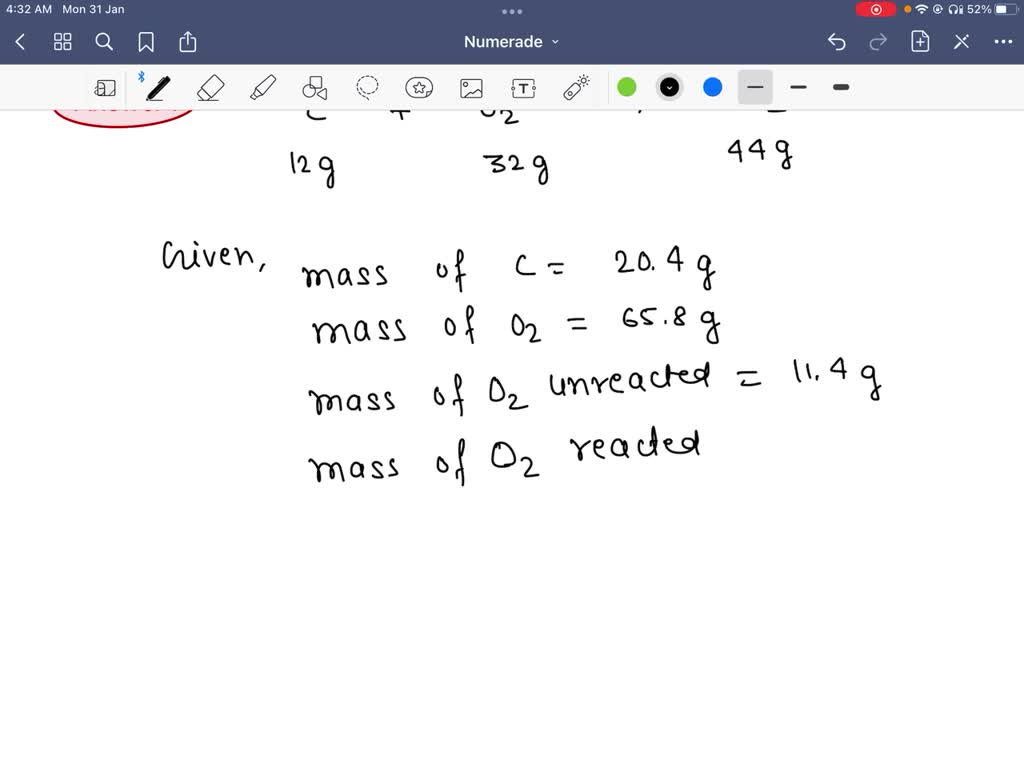 4:32 AM Mon 31 Jan
52%
Numerade
C + O2
12g 32g 44g
Given, mass of C = 20.4 g
mass of O2 = 65.8 g
mass of O2 unreacted = 11.4 g
mass of O2 reacted